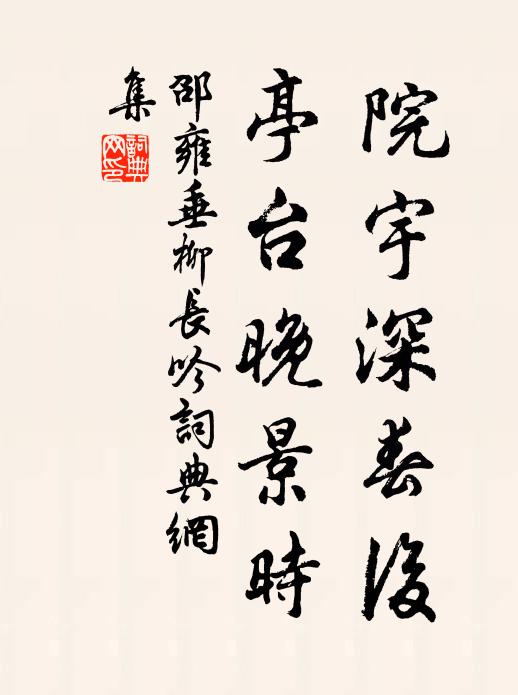 院宇深春後
亭台晚景時
邵雍垂柳長吟詞典網
集
詞典網印